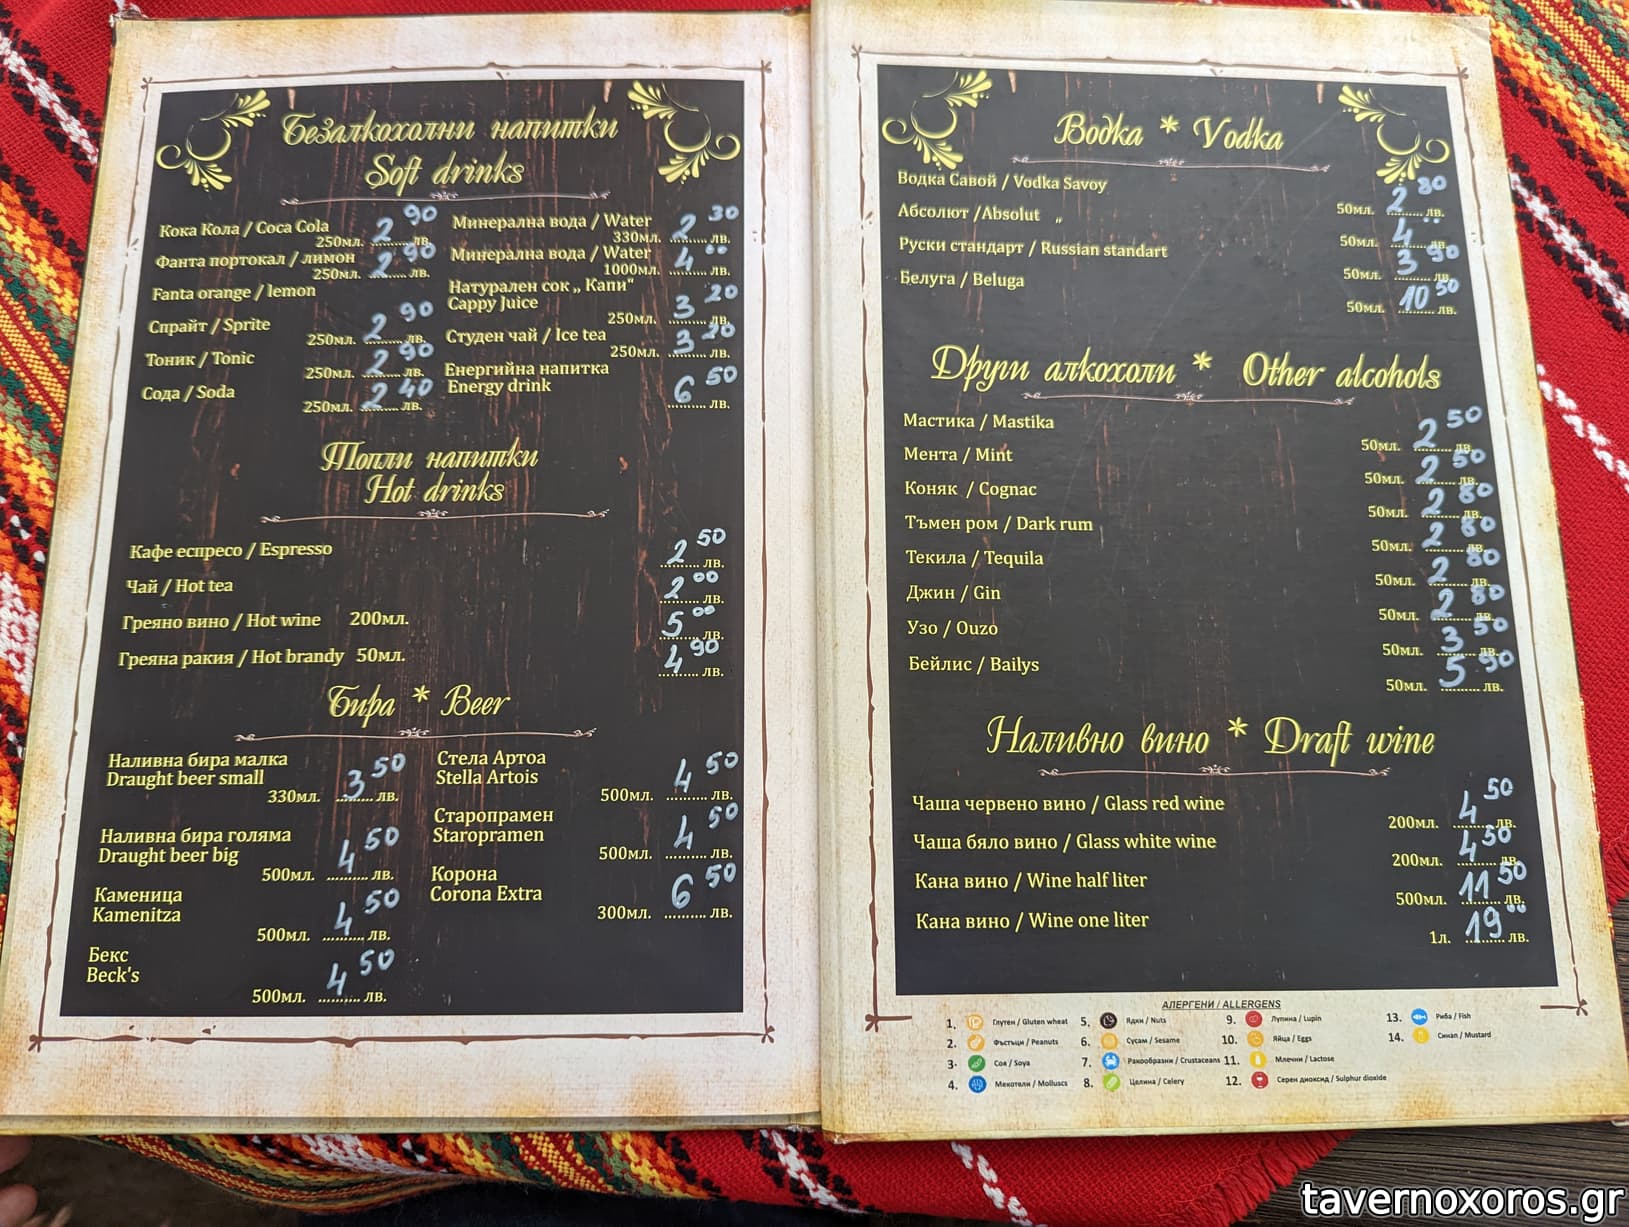 Безалкохолни напитки
Soft drinks
Кока Кола / Coca Cola
250мл. 2 90 лв.
Фанта портокал / лимон
250мл. 2 90 лв.
Fanta orange / lemon
Спрайт / Sprite
250мл. 2 90 лв.
Тоник / Tonic
250мл. 2 90 лв.
Сода / Soda
250мл. 2 40 лв.
Минерална вода / Water
330мл. 2 30 лв.
Минерална вода / Water
1000мл. 4 00 лв.
Натурален сок „ Капи"
Cappy Juice
250мл. 3 20 лв.
Студен чай / Ice tea
250мл. 3 20 лв.
Енергийна напитка
Energy drink
6 50 лв.
Топли напитки
Hot drinks
Кафе еспресо / Espresso 2 50 лв.
Чай / Hot tea 2 00 лв.
Греяно вино / Hot wine 200мл. 5 00 лв.
Греяна ракия / Hot brandy 50мл. 4 90 лв.
Бира * Beer
Наливна бира малка
Draught beer small
330мл. 3 50 лв.
Наливна бира голяма
Draught beer big
500мл. 4 50 лв.
Каменица
Kamenitza
500мл. 4 50 лв.
Бекс
Beck's
500мл. 4 50 лв.
Стела Артоа
Stella Artois
500мл. 4 50 лв.
Старопрамен
Staropramen
500мл. 4 50 лв.
Корона
Corona Extra
300мл. 6 50 лв.
Водка * Vodka
Водка Савой / Vodka Savoy
50мл. 2 80 лв.
Абсолют /Absolut „
50мл. 4 00 лв.
Руски стандарт / Russian standart
50мл. 3 90 лв.
Белуга / Beluga
50мл. 10 50 лв.
Други алкохоли * Other alcohols
Мастика / Mastika
50мл. 2 50 лв.
Мента / Mint
50мл. 2 50 лв.
Коняк / Cognac
50мл. 2 80 лв.
Тъмен ром / Dark rum
50мл. 2 80 лв.
Текила / Tequila
50мл. 2 80 лв.
Джин / Gin
50мл. 2 80 лв.
Узо / Ouzo
50мл. 3 50 лв.
Бейлис / Bailys
50мл. 5 90 лв.
Наливно вино * Draft wine
Чаша червено вино / Glass red wine
200мл. 4 50 лв.
Чаша бяло вино / Glass white wine
200мл. 4 50 лв.
Кана вино / Wine half liter
500мл. 11 50 лв.
Кана вино / Wine one liter
1л. 19 00 лв.
АЛЕРГЕНИ / ALLERGENS
1. Глутен / Gluten wheat
2. Фъстъци / Peanuts
3. Соя / Soya
4. Мекотели / Molluscs
5. Ядки / Nuts
6. Сусам / Sesame
7. Ракообразни / Crustaceans
8. Целина / Celery
9. Лупина / Lupin
10. Яйца / Eggs
11. Млечни / Lactose
12. Серен диоксид / Sulphur dioxide
13. Риба / Fish
14. Синап / Mustard
tavernoxoros.gr